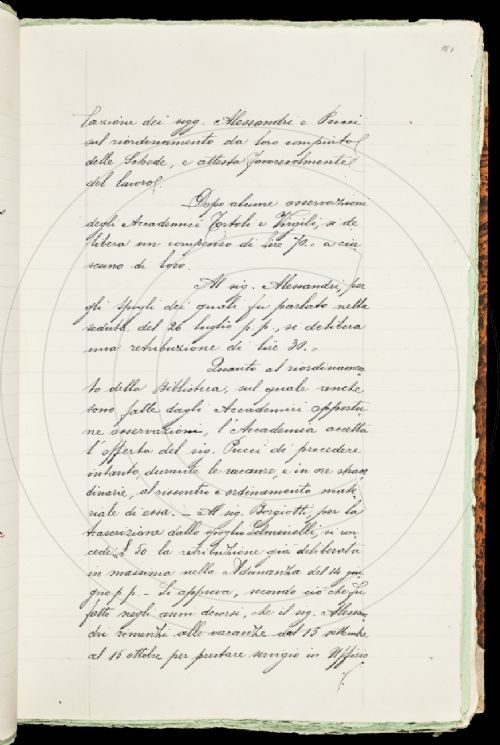 lazione dei sigg. Alessandri e Pucci
sul riordinamento da loro compiuto
delle Schede, e attesta favorevolmente
del lavoro.
Dopo alcune osservazioni
degli Accademici Tortoli e Virgili, si de
libera un compenso di lire 70.= a cia-
scuno di loro.
Al sig. Alessandri, per
gli spogli dei quali fu parlato nella
seduta del 26 luglio p.p., si delibera
una retribuzione di lire 30.=
Quanto al riordinamen-
to della Biblioteca, sul quale venne
sono fatte dagli Accademici opportu-
ne osservazioni, l'Accademia accetta
l'offerta del sig. Pucci di procedere
intanto, durante le vacanze, e in ore straor
dinarie, al riscontro e ordinamento mate-
riale di essa. - Al sig. Borgiotti, per la
trascrizione dello spoglio Selminelli, si con-
cede £ 50 la retribuzione già deliberata
in massima nella Adunanza del 14 giu-
gno p.p. - Si approva, secondo ciò che fu
fatto negli anni decorsi, che il sig. Alessan-
dri rinunzi alle vacanze dal 15 settembre
al 15 ottobre per prestare servigio in Ufficio